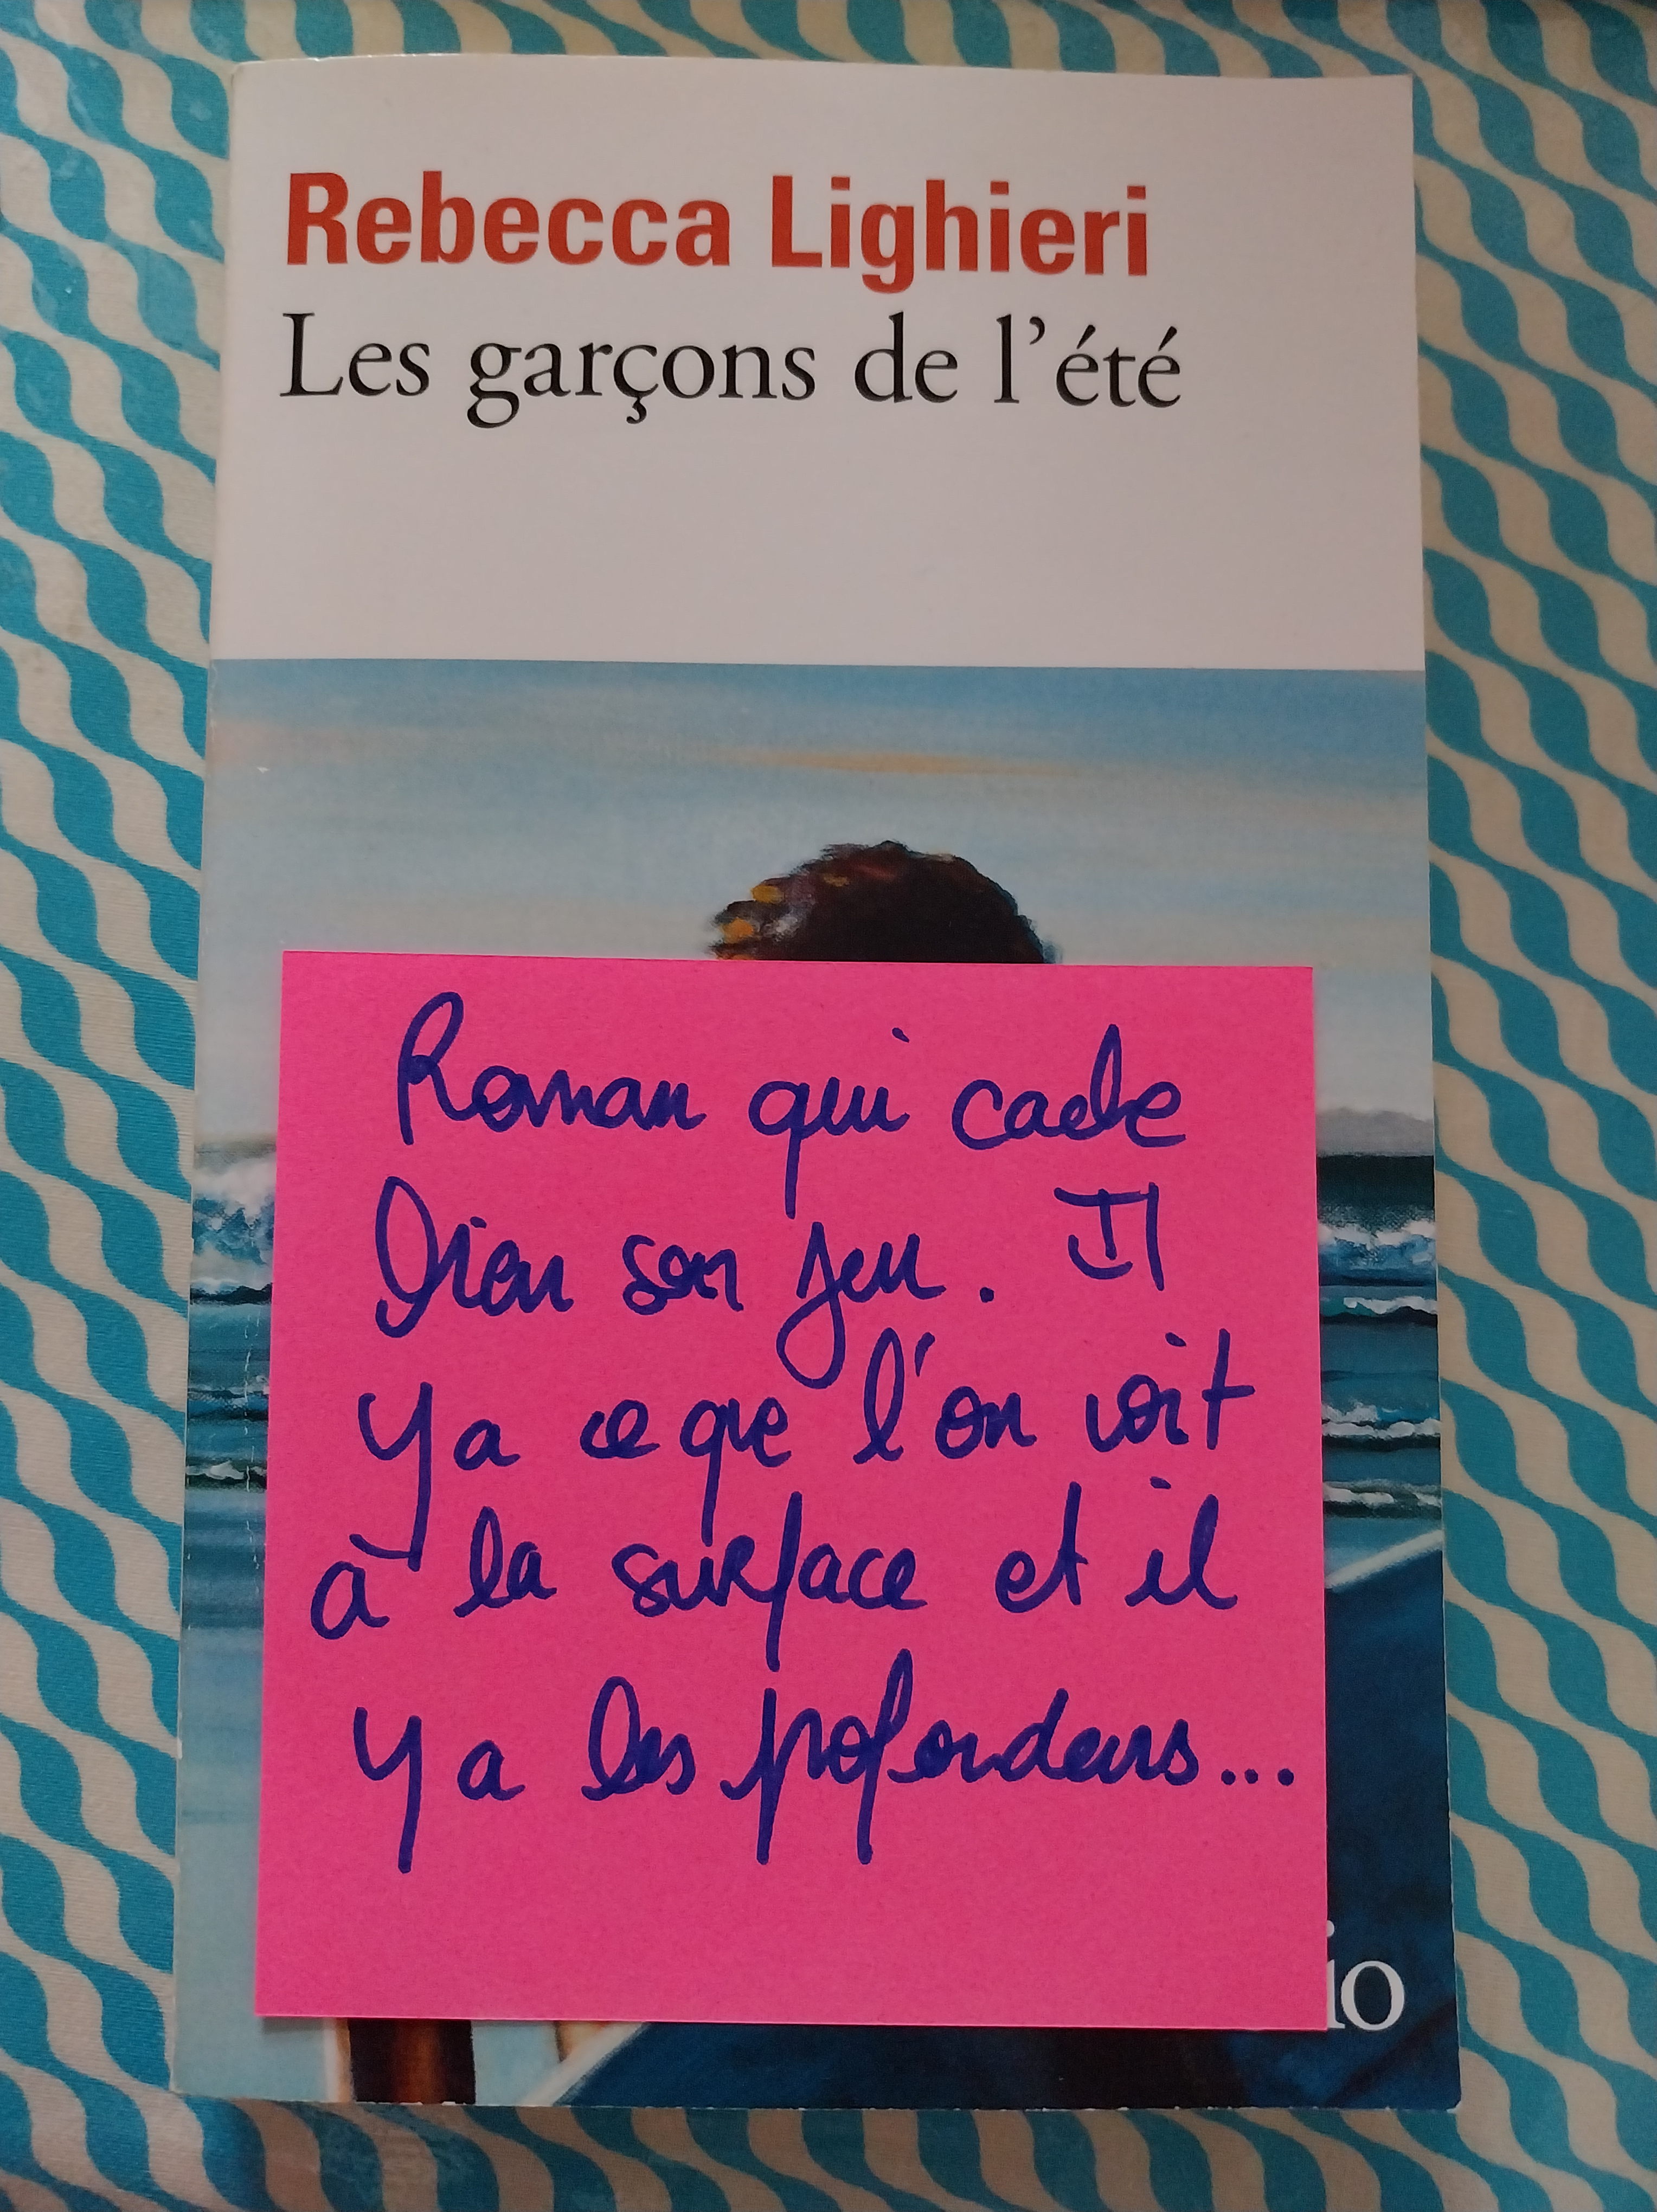 Rebecca Lighieri
Les garçons de l'été
Roman qui cache
bien son jeu. Il
y a ce que l'on voit
à la surface et il
y a les profondeurs...
io